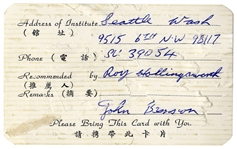 Address of Institute Seattle Wash
(館 址) 9515 6th N.W 98117
Phone (電話) SU 39054
Recommended by Roy Hollingsworth
(推薦人)
Remarks (摘要)
John Benson
Please Bring This Card with You.
請携帶此卡片